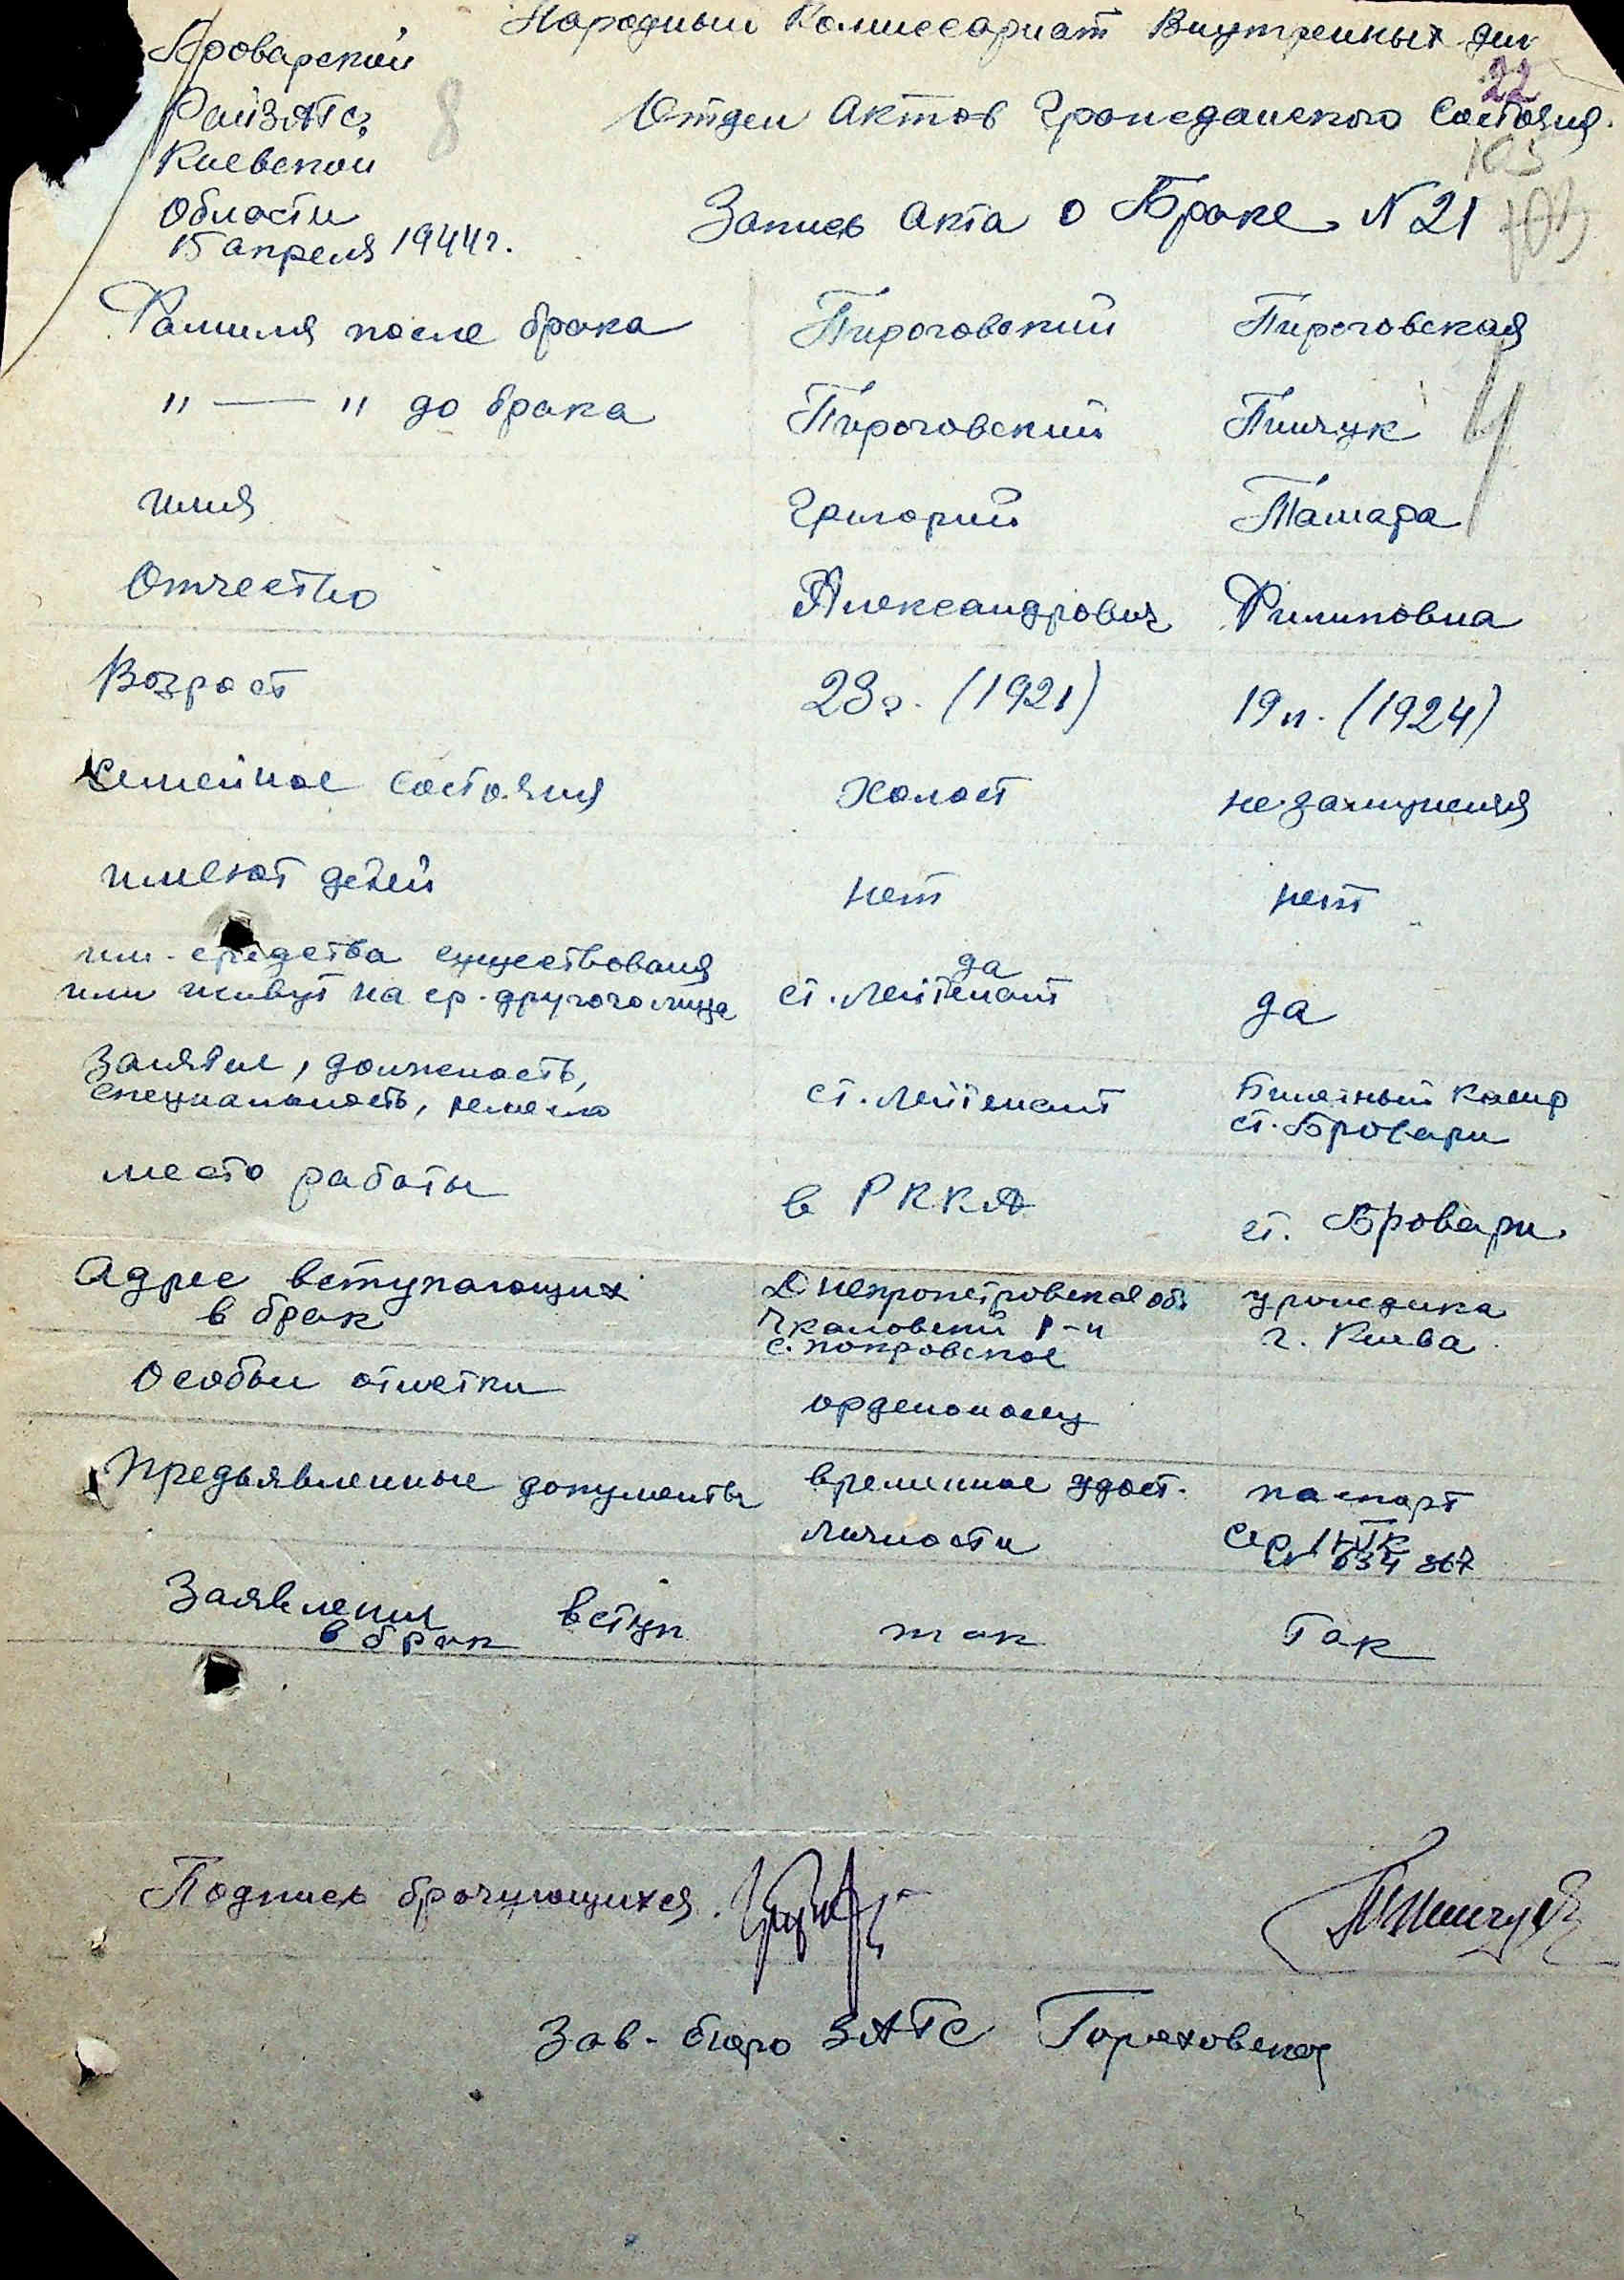 Народный Комиссариат Внутренных дел
Броварский
РайЗАГС
Киевской
Области
15 апреля 1944 г.
8
22
Отдел Актов Гражданского Состояния.
103
Запись Акта о Браке N 21
Фамилия после брака Пироговский Пироговская
" — " до брака Пироговский Пинчук
имя Григорий Тамара
Отчество Александрович Филиповна
Возраст 23 г. (1921) 19 л. (1924)
Семейное состояния Холост незамужняя
имеют детей нет нет
им. средства существования да
или живут на ср. другого лица ст. Лейтенант да
Занятие, должность, ст. Лейтенант Билетный Касир
специальность, ремесло ст. Бровары
место работы в РККА ст. Бровары
Адрес вступающих Днепропетровская об. урожденка
в брак Чкаловский р-н г. Киева
с. Покровское
Особые отметки орденоносец
Предьявленные документы временное удост. паспорт
личности
634 867
Заявления вступ. так Так
в брак
Подпись брачующихся. Пинчук
Зав. бюро ЗАГС Гороховская